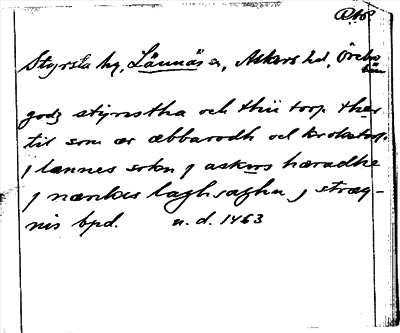 Styrsta hg, Lännäs sn, Askers hd, Örebro
län
godz styrestha och thii torp ther
til som ær æbbarodh och krokatorp
j lænnes sokn j askers hæradhe
j nærikes laghsaghu j stræg-
nis bpd. u. d. 1463